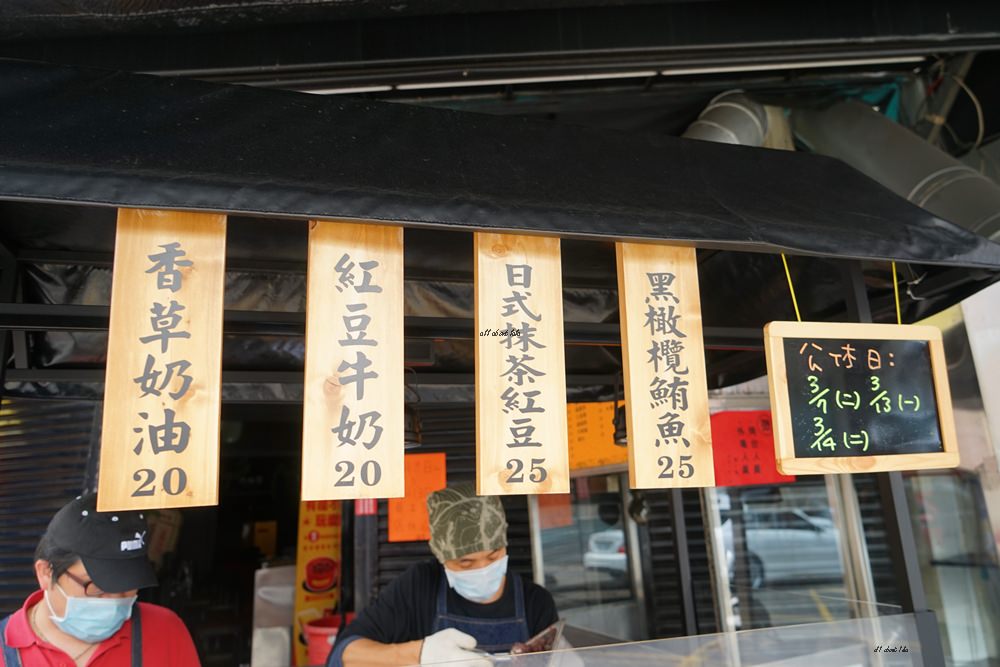 香草奶油
20
紅豆牛奶
20
日式抹茶紅豆
25
黑橄欖鮪魚
25
公休日:
3/7(二) 3/13(一)
3/14(二)
all about lulu
PUMA